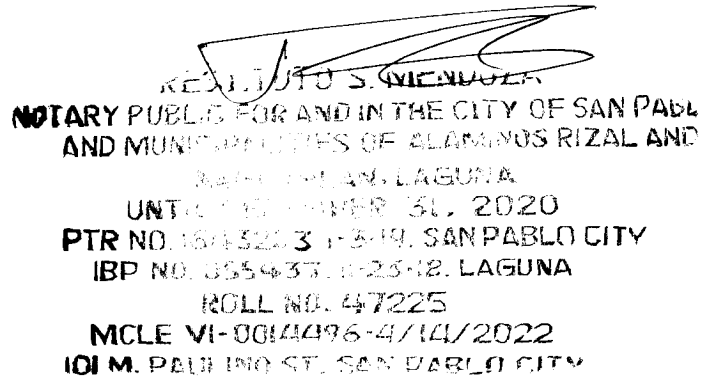 RESTITUTO S. MENDOZA
NOTARY PUBLIC FOR AND IN THE CITY OF SAN PABL
AND MUNICIPALITIES OF ALAMINOS RIZAL AND
LAGUNA
UNTIL DECEMBER 31, 2020
PTR NO. 1-3-19. SAN PABLO CITY
IBP NO. 055433. LAGUNA
ROLL NO. 47225
MCLE VI-0014496-4/14/2022
101 M. PAULINO ST. SAN PABLO CITY